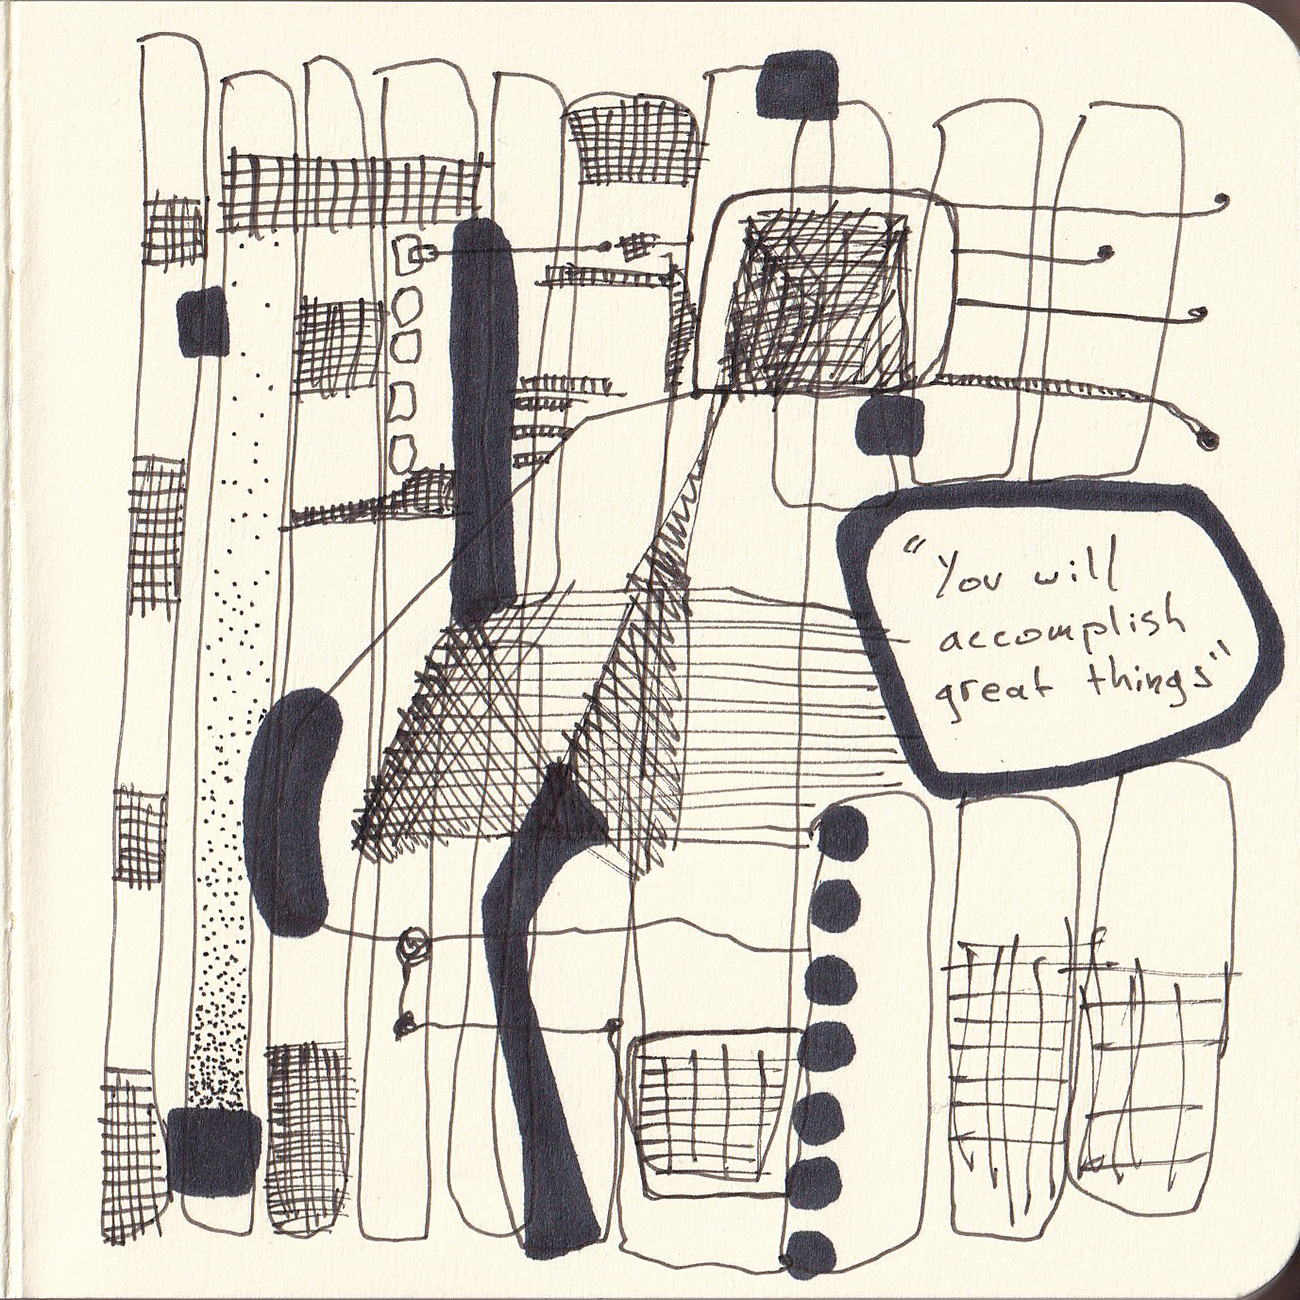 "You will
accomplish
great things"